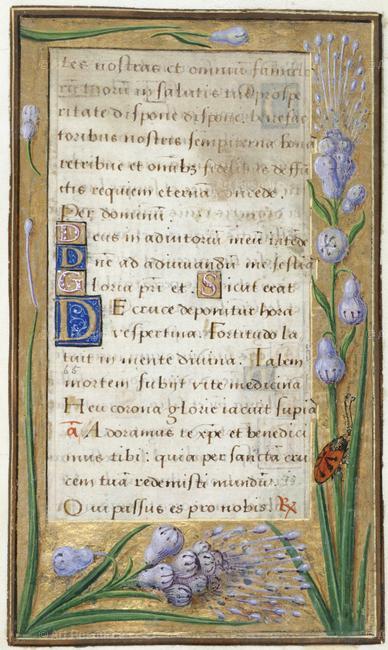 tes nostras et omniū famulo
rū tuorū in salutis tue prospe
ritate dispone dispone. benefac
toribus nostris sempiterna bona
retribue et omnibꝫ fidelibus deffū
ctis requiem eternā concede.
Per dominū
Deus in adiutoriū meū intēde
Dne ad adiuvandū me festiā
Gloria pri et. Sicut erat
DE cruce deponitur hora
vespertina. Fortitudo la
tuit in mente divina. Talem
mortem subijt vite medicina
Heu corona glorie iacuit supia
a. Adoramus te xpe et benedici
mus tibi: quia per sanctā cru
cem tuā redemisti mundū.
Qui passus es pro nobis. R